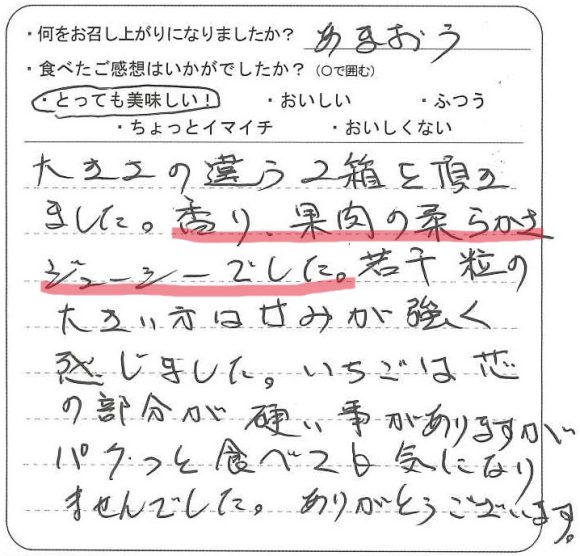 ・何をお召し上がりになりましたか? あまおう
・食べたご感想はいかがでしたか?(○で囲む)
・とっても美味しい! ・おいしい ・ふつう
・ちょっとイマイチ ・おいしくない
大きさの違う2箱を頂き
ました。香り、果肉の柔らかさ
ジューシーでした。若干粒の
大きい方は甘みが強く
感じました。いちごは芯
の部分が硬い事がありますが
パクっと食べても気になり
ませんでした。ありがとうございます。